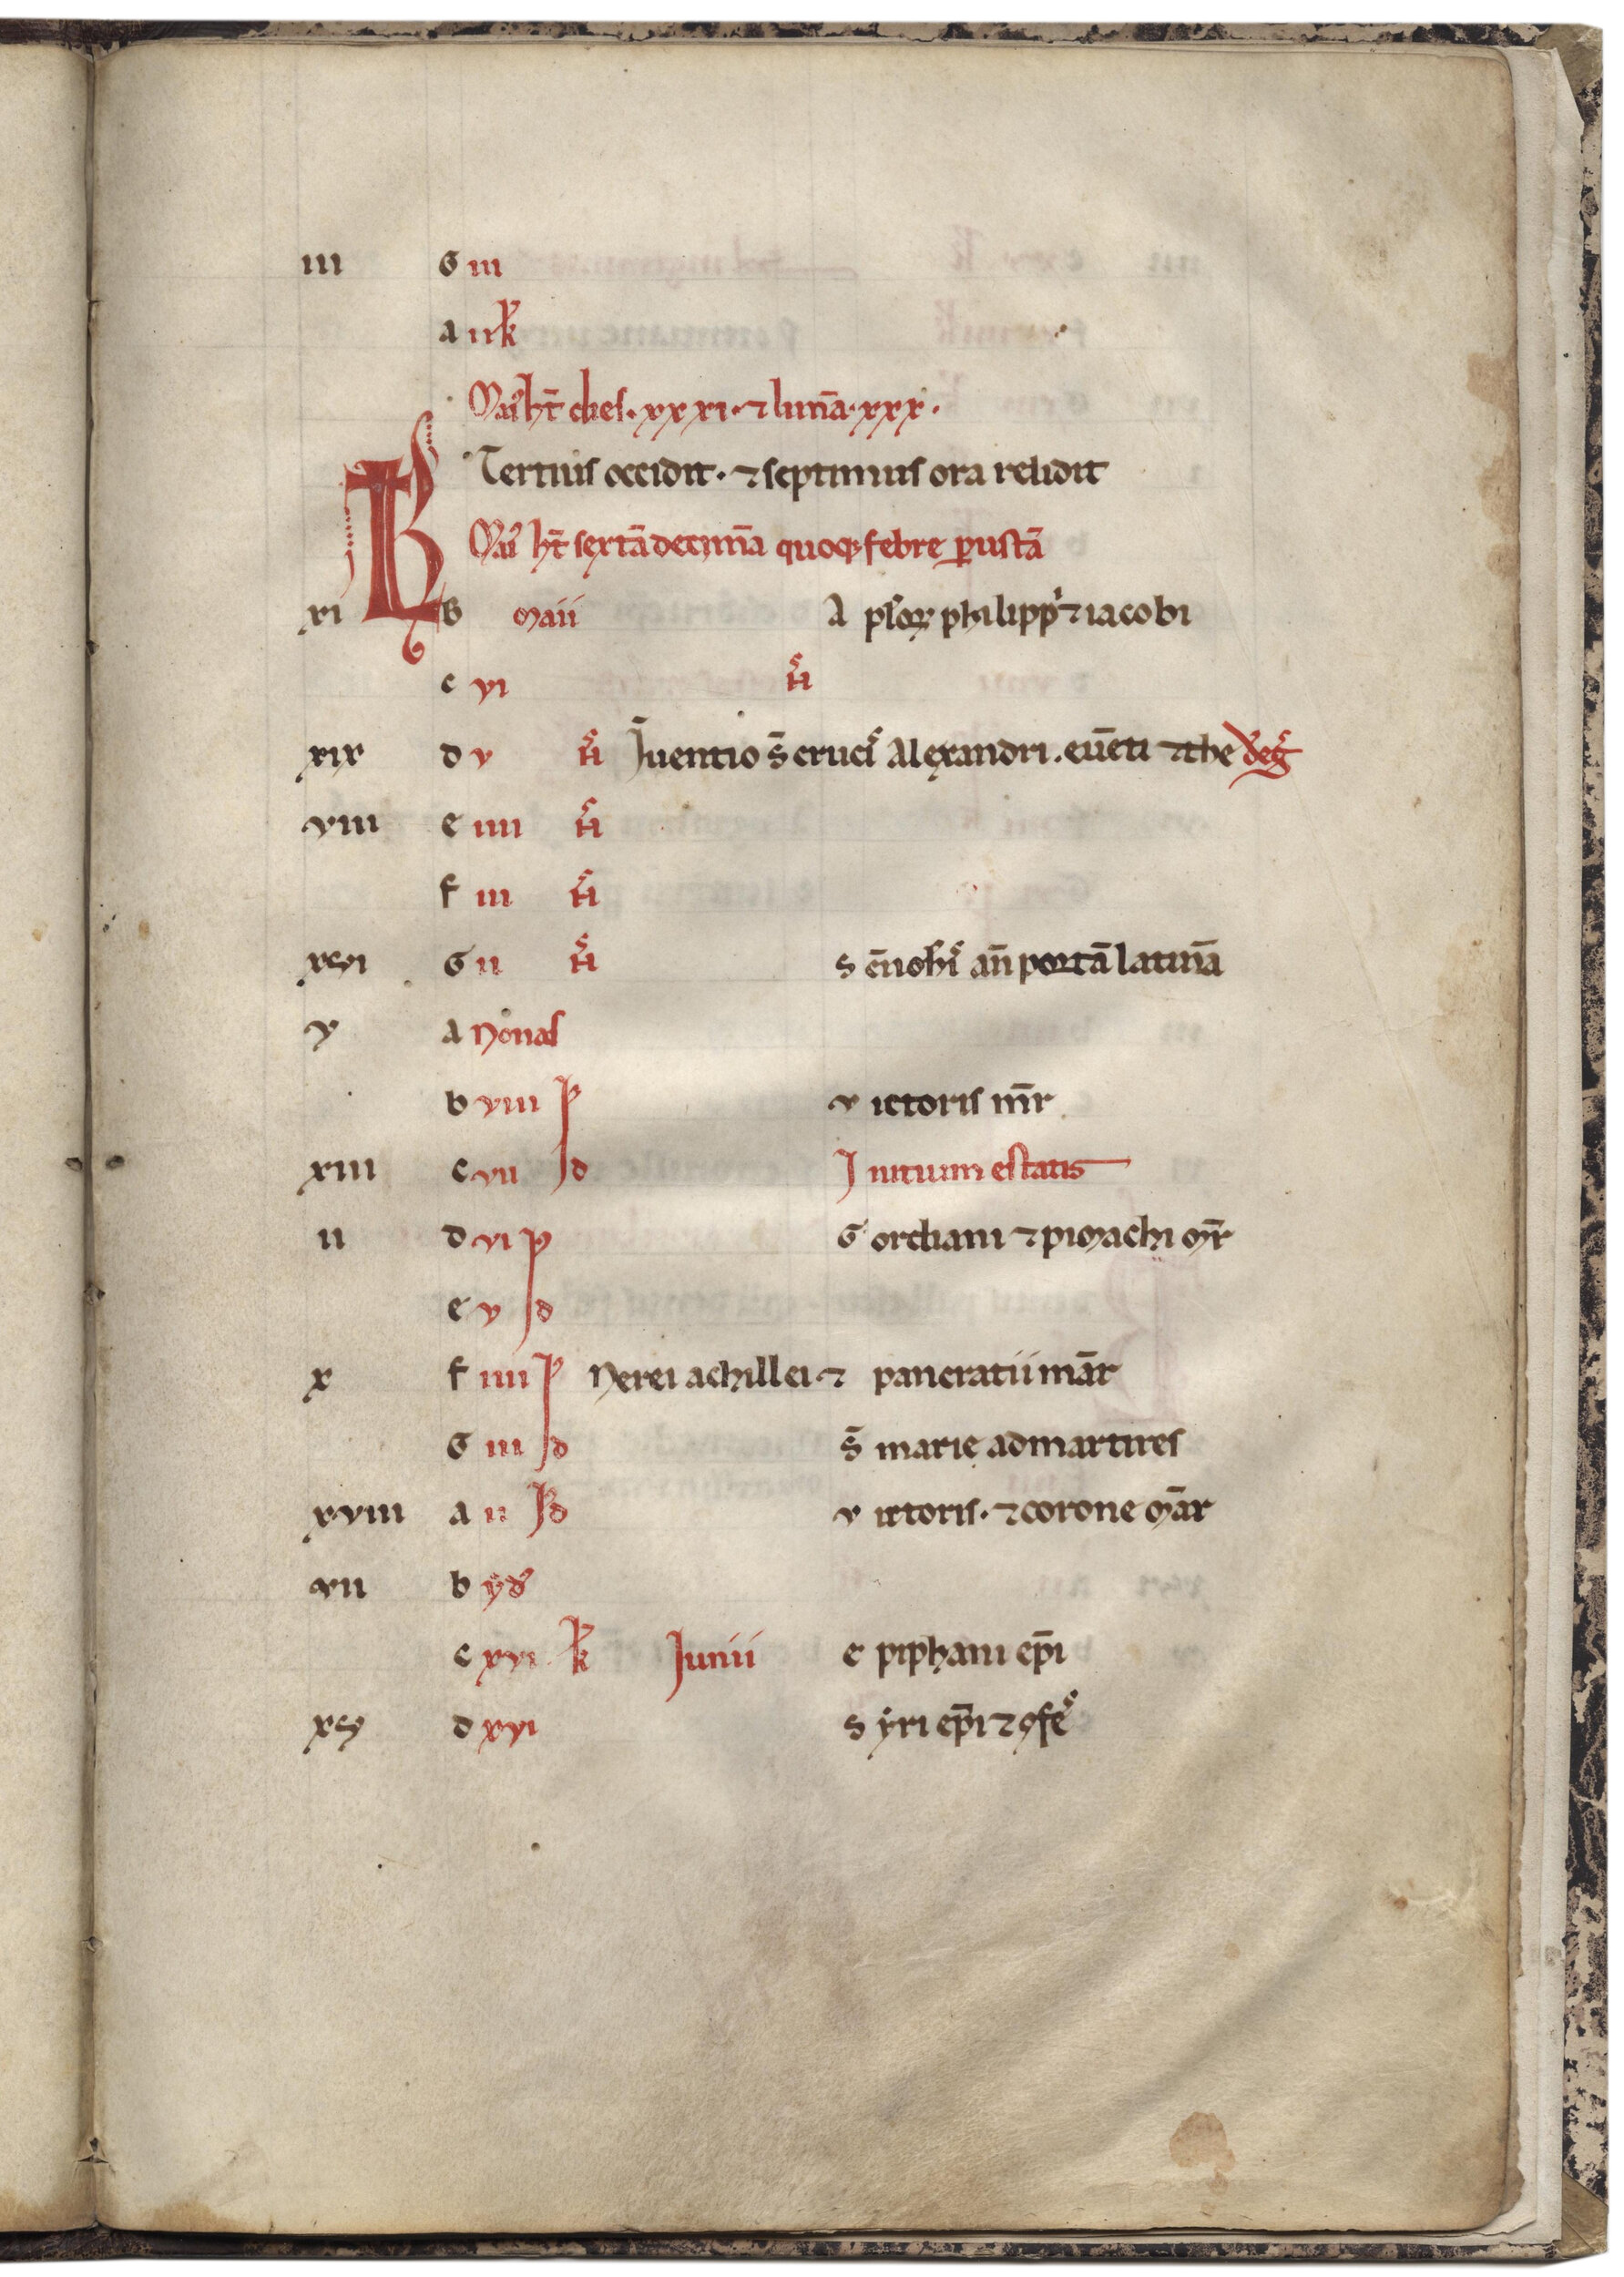 iii G iii
a ii k̄
Mai' ht̄ dies · xxxi · ⁊ lunā · xxx ·
Tertius occidit · ⁊ septimus ora relidit
KL Mai' ht̄ sextā decimā quoq; febre ꝑustā
xi b maii A pl̓oꝝ philipp' ⁊ iacobi
c vi
xix d v Īuentio s̄ cruc' alexandri . euēti ⁊ the
viii e iiii
f iii
xvi G ii S c̄i ioh̄i an̄ portā latinā
v a Nonas
b viii P Victoris m̄r
xiii c vii Id Initium estatis
ii d vi P Gordiani ⁊ pimachi m̄r
e v Id
x f iiii P Nerei achillei ⁊ pancratii mār
G iii Id S̄ marie ad martires
xviii a ii P Id Victoris · ⁊ corone mār
vii b yd'
c xvi k̄ Junii Epiphani ep̄i
xv d xvi Syri ep̄i ⁊ ꝯfe'